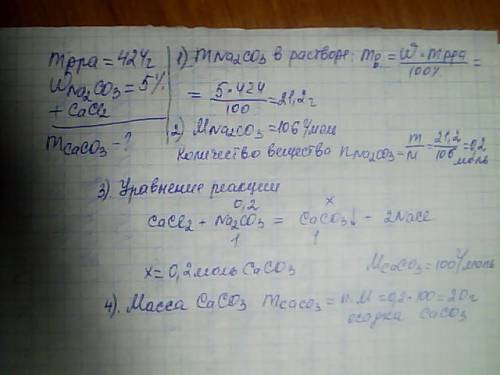 mр-ра = 424г
WNa2CO3 = 5%
+ CaCl2
mCaCO3 - ?
1) mNa2CO3 в растворе: mв = W · mр-ра / 100% =
= 5·424 / 100 = 21,2г
2) MNa2CO3 = 106 г/моль
Количество вещества nNa2CO3 = m/M = 21,2/106 = 0,2 моль
3). Уравнение реакции
0,2 x
CaCl2 + Na2CO3 = CaCO3↓ + 2NaCl
1 1
x = 0,2 моль CaCO3 MCaCO3 = 100 г/моль
4). Масса CaCO3 mCaCO3 = n·M = 0,2·100 = 20г
осадка CaCO3